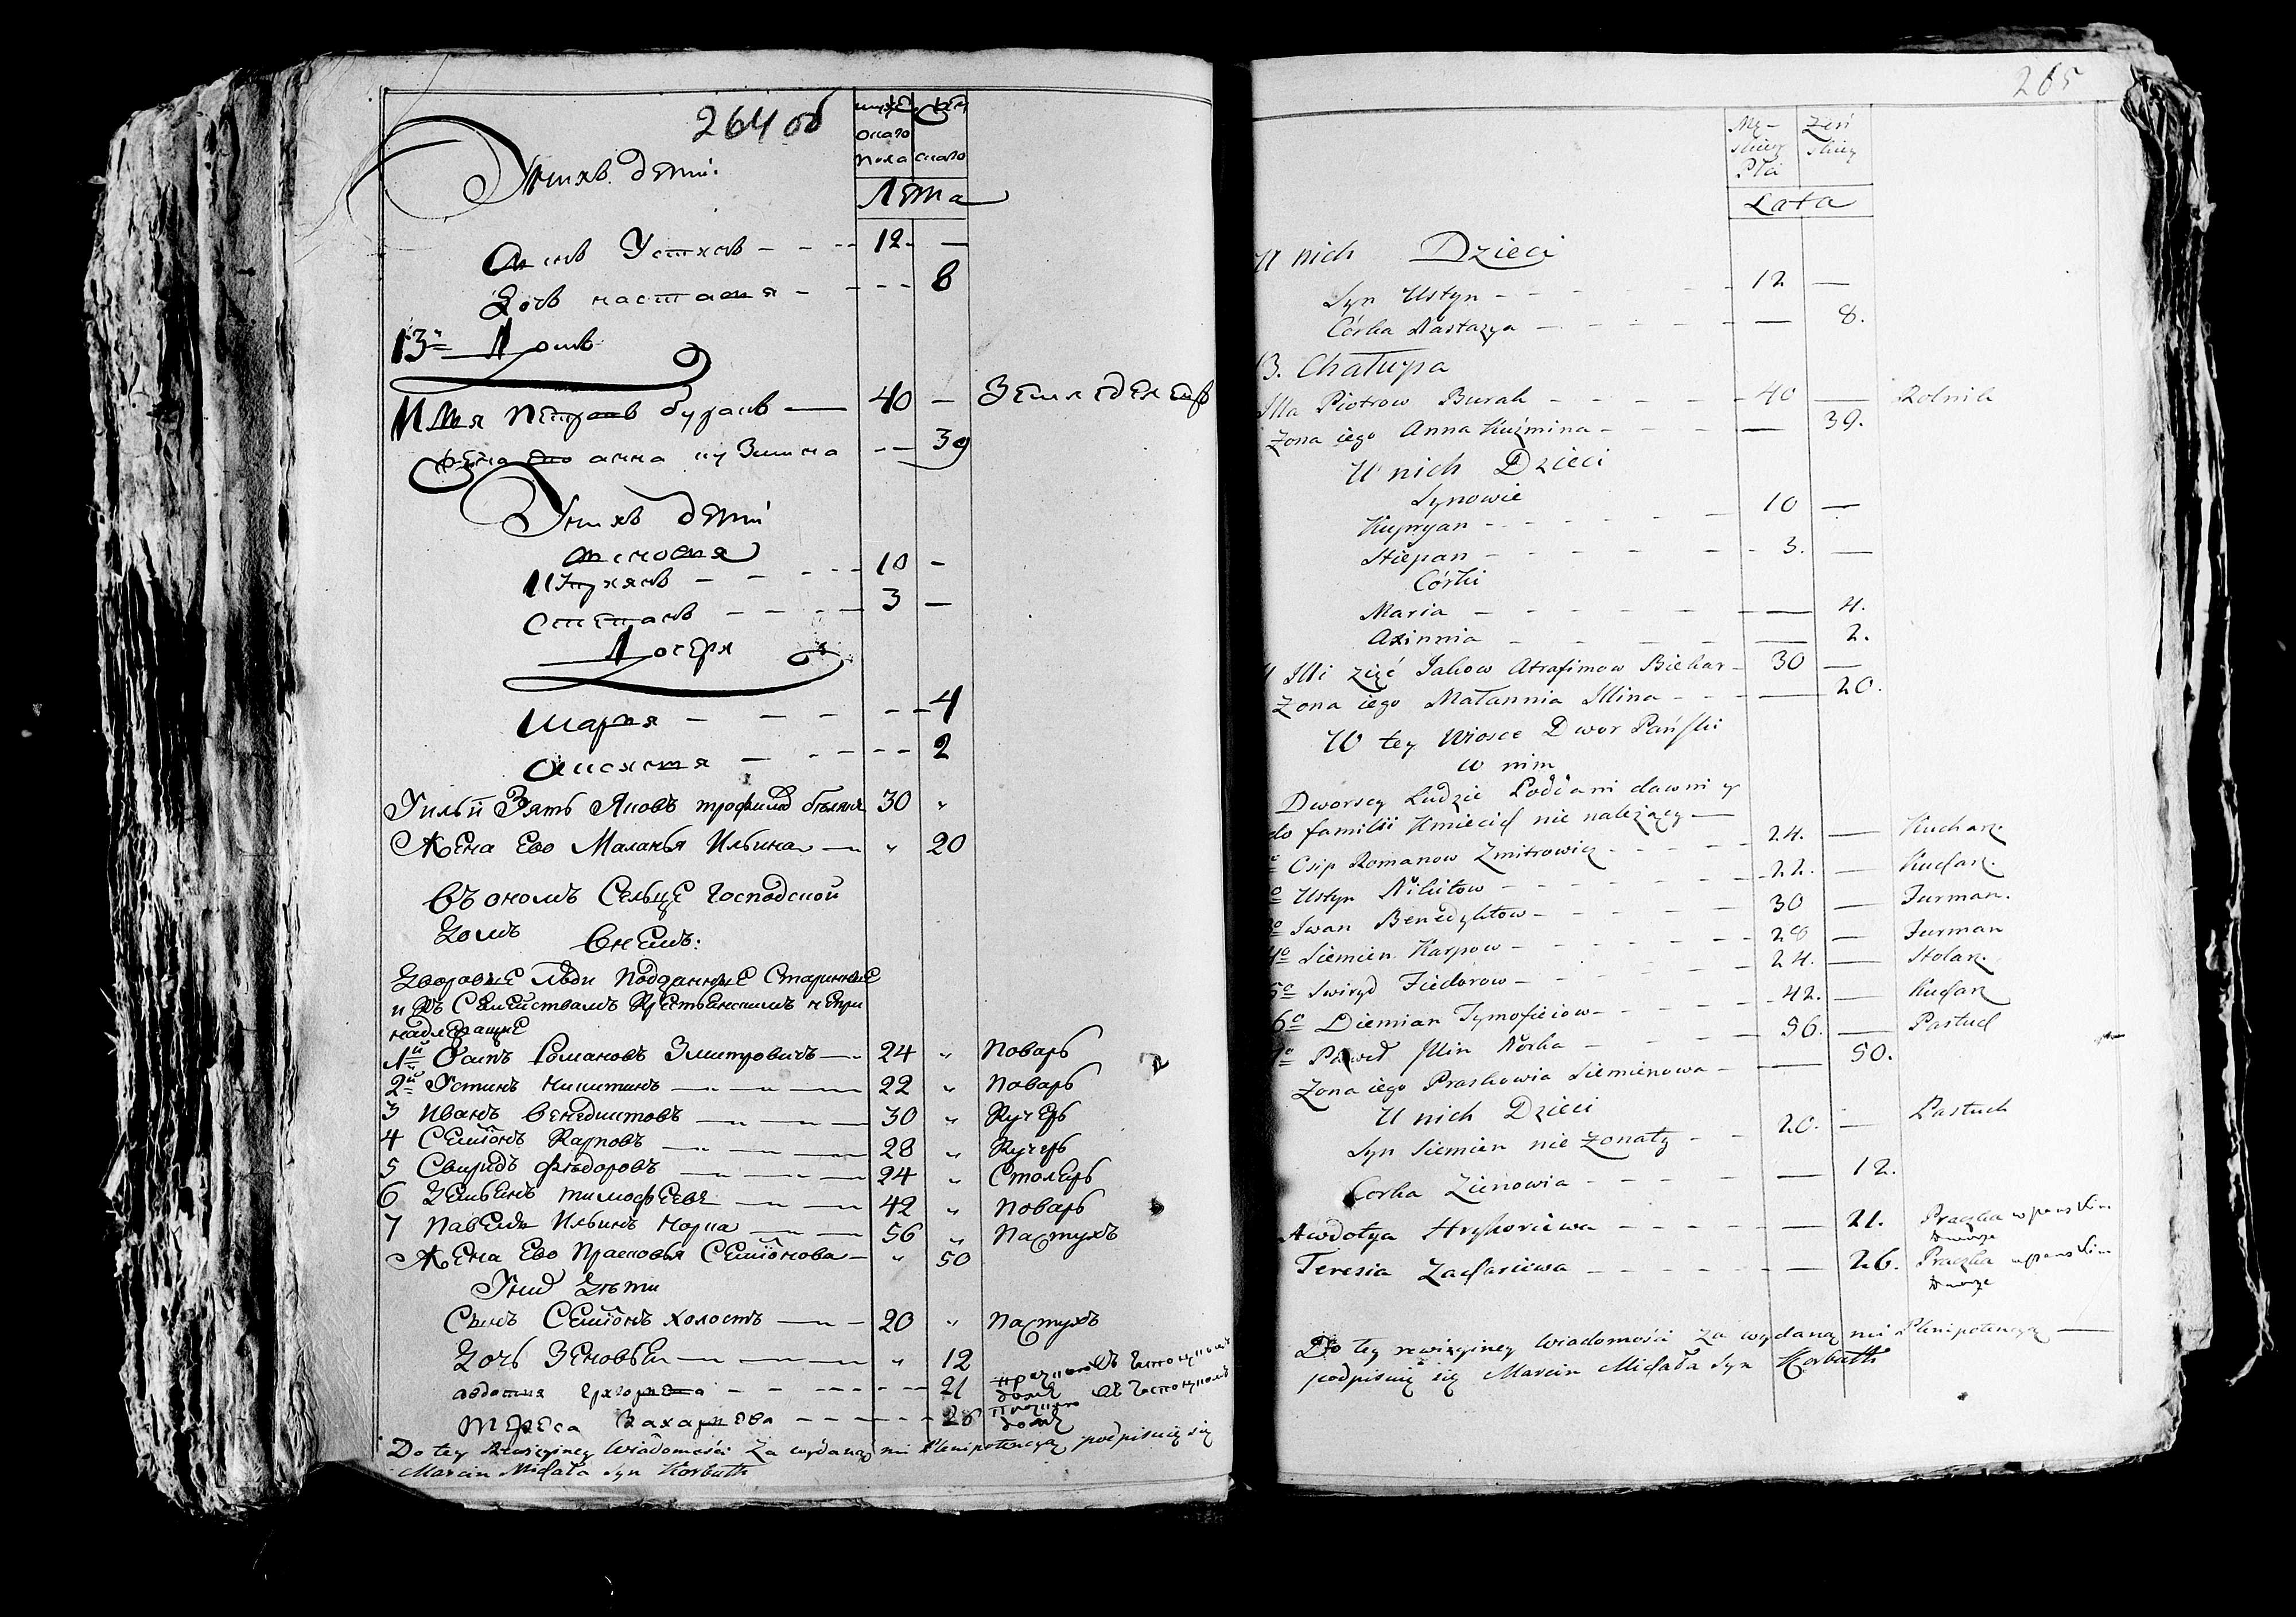 264 об
муже женскаго
скаго
пола
Лѣта
У нихъ дѣти:
сынъ Устинъ - - - - 12. —
Дочь настасия - - - - 8
13й Домъ
Илья петровъ буракъ — 40 — Земледелецъ
жена ево анна кузмина - - 39
У нихъ дѣти
сыновья
Куприянъ - - - - 10 -
Степанъ - - - - 3 —
Дочери
Мария - - - - 4
Аксиния - - - - 2
У ильи Зять Яковъ трофимовъ 30 "
Жена Ево Маланья Ильина — " 20
Въ ономъ Сельце Господской
Домъ Внемъ:
Дворовые Люди Подданные Старинные
и Къ Семействамъ Крестьянскимъ непри
надлежащие
1й Осипъ Романовъ Змитровичъ — 24 " Поваръ
2й Устинъ Никитинъ — 22 " Поваръ
3 Иванъ Венедиктовъ — 30 " Кучеръ
4 Семионъ Карповъ — 28 " Кучеръ
5 Свиридъ Фѣдоровъ — 24 " Столяръ
6 Демьенъ тимофеевъ — 42 " Поваръ
7 Павелъ Ильинъ Норка — 56 " Пастухъ
Жена Ево Прасковья Семионова — " 50
У них Дѣти
Сынъ Семионъ холостъ — 20 " Пастухъ
Дочь Зеновья — " 12
авдотия григорьева - - - - 21 прачкою въ господскомъ
доме
Тереса Захарьева - - - - 26 прачкою въ господскомъ
доме
Do tey Rewizyiney Wiadomości Za wydaną mi Plenipotencyą podpisuię się
Marcin Michała syn Korbutt
265
Mę- Żeń
skiey skiey
Płci
Lata
U nich Dzieci
Syn Ustyn - - - - 12 —
Córka Nastazya - - - - — 8.
13. Chałupa
Illa Piotrow Burak - - - - 40 — Rolnik
Zona iego Anna Kuźmina - - - — 39.
U nich Dzieci
Synowie
Kupryan - - - - 10 —
Stiepan - - - - 3. —
Córki
Maria - - - - — 4.
Axinnia - - - - — 2.
U Illi zięć Jakow Atrafimow Biekar - 30 —
Zona iego Małannia Illina - - - — 20.
W tey Wiosce Dwor Pański
w nim
Dworscy Ludzie Poddani dawni y
do familii Kmiecich nie należący —
1o Osip Romanow Zmitrowicz - - - 24. — Kucharz.
2o Ustyn Nikitow - - - - 22. — Kucharz.
3o Iwan Benedyktow - - - - 30 — Furman.
4o Siemien Karpow - - - - 28 — Furman
5o Swiryd Fiedorow - - - - 24. — Stolarz.
6o Diemian Tymofieiow - - - - 42. — Kucharz
7o Paweł Illin Norka - - - - 56. — Pastuch
Zona iego Praskowia Siemienowa - — 50.
U nich Dzieci
Syn Siemien nie zonaty - - 20. — Pastuch
Corka Zienowia - - - - — 12.
Awdotya Hryhoriewa - - - - — 21. Praczka w panskim
Dworze
Teresia Zachariewa - - - - — 26. Praczka w panskim
Dworze
Do tey rewizyiney Wiadomości za wydaną mi Plenipotencyą —
podpisuię się Marcin Michała Syn Korbutt